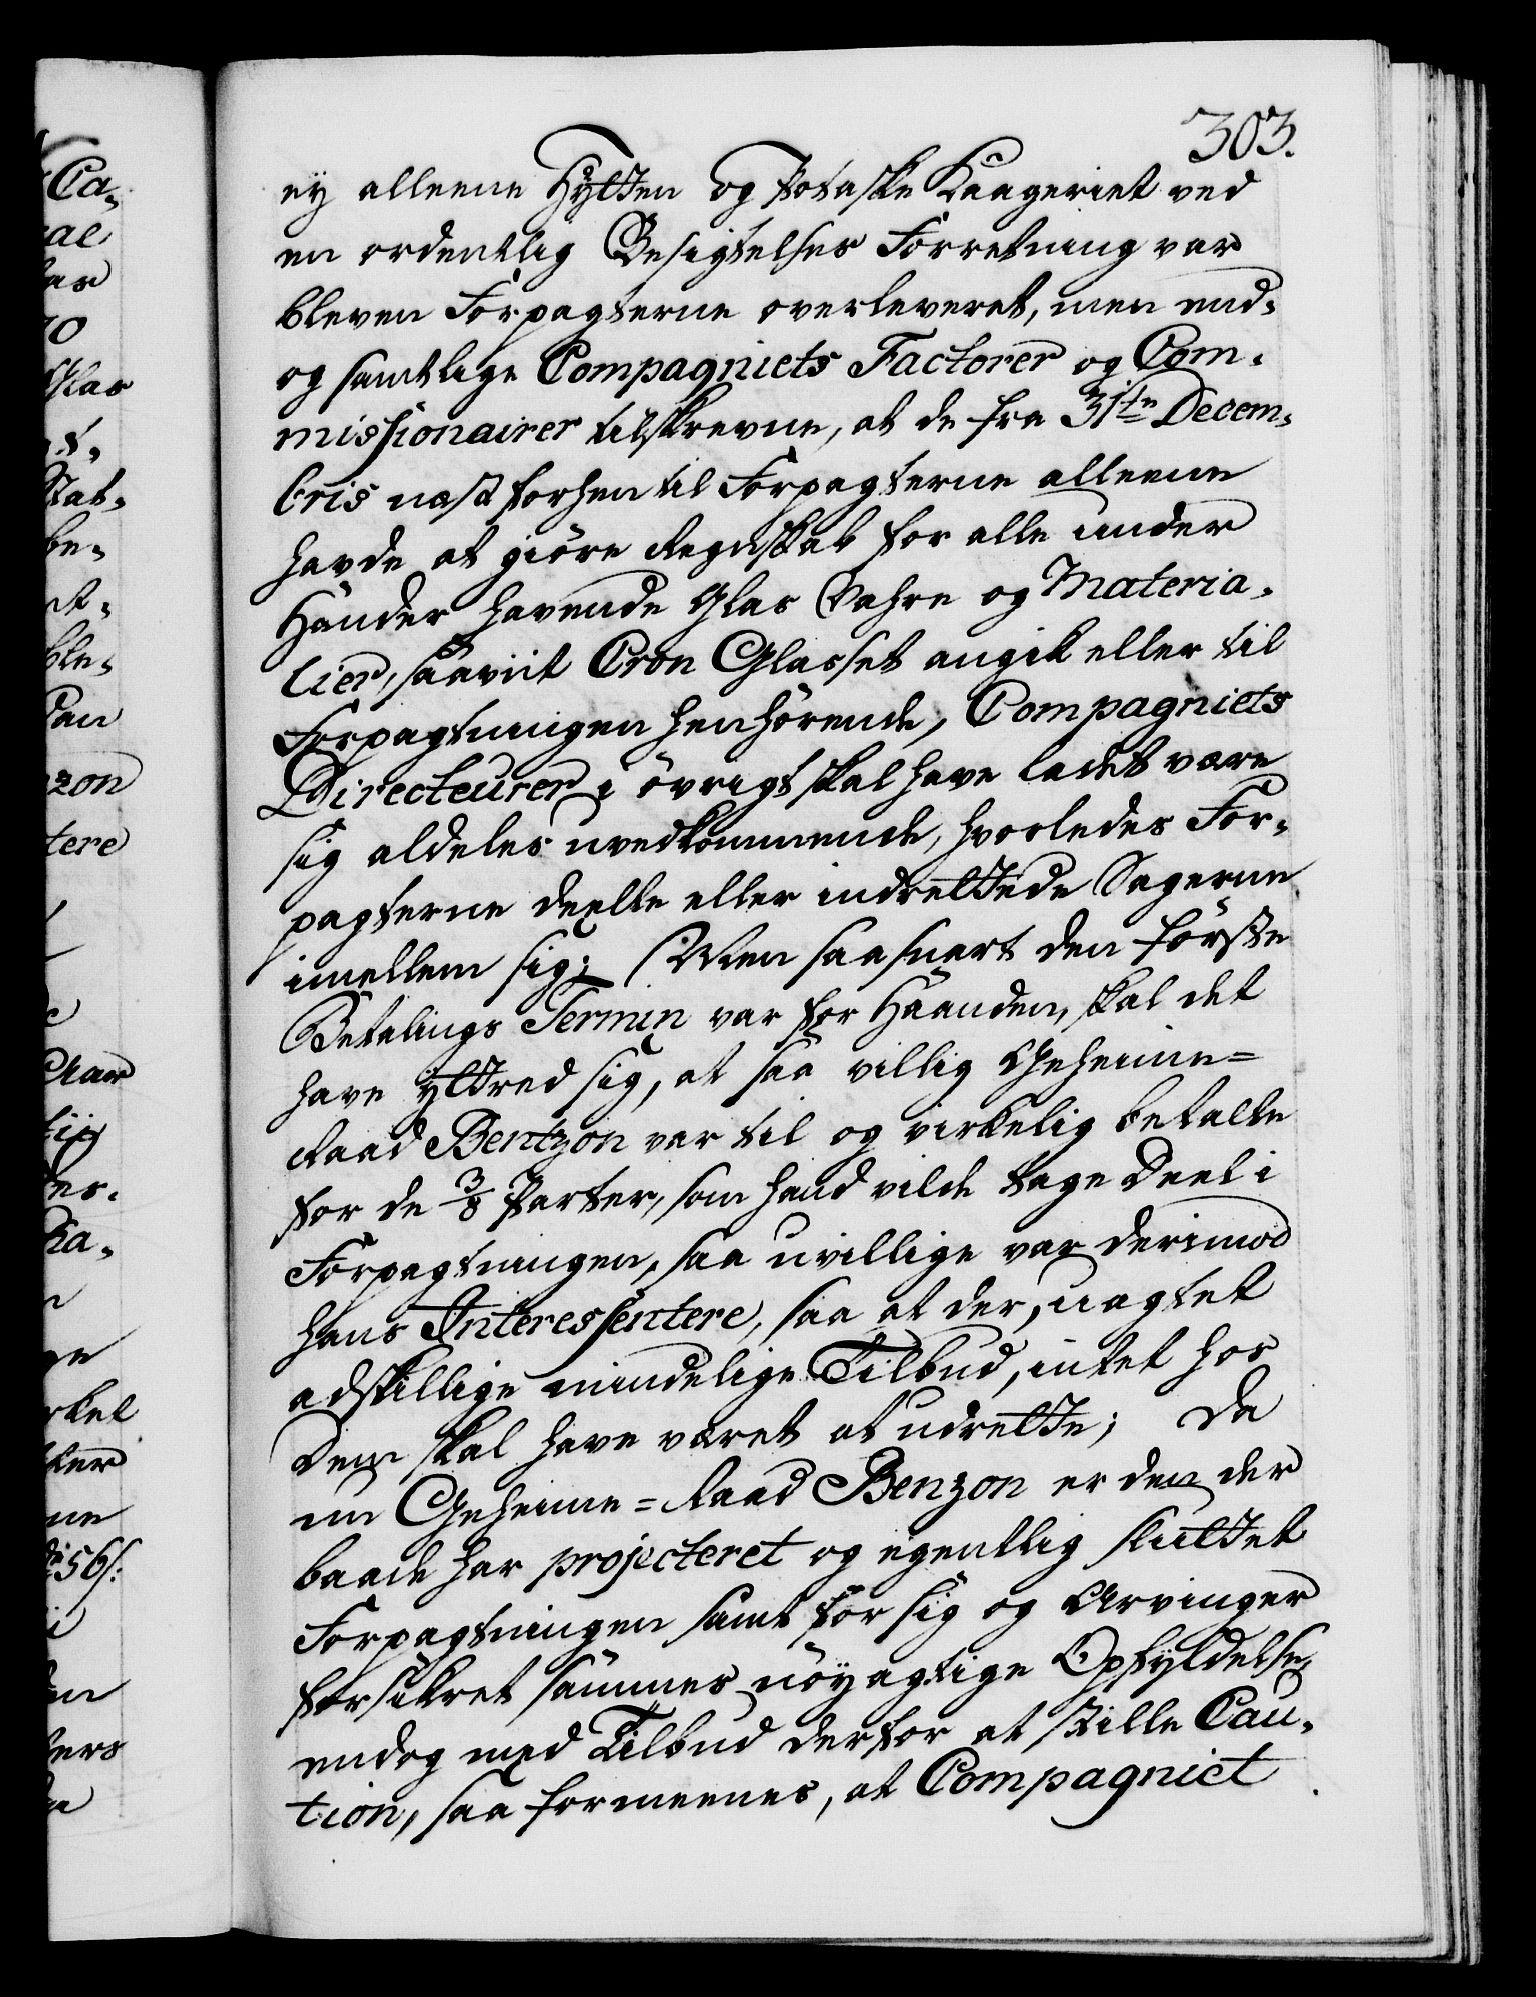 303.
ey alleene Hytten og Potaske Kaageriet ved
en ordentlig Besigtelses Forretning var
bleven Forpagterne overleveret, men end-
og samtlige Compagniets Factorer og Com-
missionairer tilskrevne, at de fra 31te Decem-
bris næst forhen til Forpagterne alleene
havde at giöre Regnskab for alle under
Hænder havende Glas Vahre og Materia-
lier, saavit Cron Glasset angik eller til
Forpagtningen henhörende, Compagniets
Directeurer i övrigt skal have ladet være
sig aldeles uvedkommende, hvorledes For-
pagterne deelte eller indrettede Sagerne
imellem sig; Men saasnart den förste
Betalings Termin var for Haanden, skal det
have yttred sig, at saa villig Geheime=
Raad Bentzon var til og virkelig betalte
for de 3/8 Parter, som hand vilde tage Deel i
Forpagtningen, saa uvillige var derimod
hans Interessentere, saa at der, uagtet
adskillige mindelige Tilbud, intet hos
dem skal have været at udrette; Da
nu Geheime=Raad Benzon er den der
baade har projecteret og egentlig sluttet
Forpagtningen samt for sig og Arvinger
forsikret sammes nöyagtige Opfyldelse,
endog med Tilbud derfor at stille Cau-
tion, saa formeenes, at Compagniet
Ca-
ael
10
Glas
zon
tere
56/: